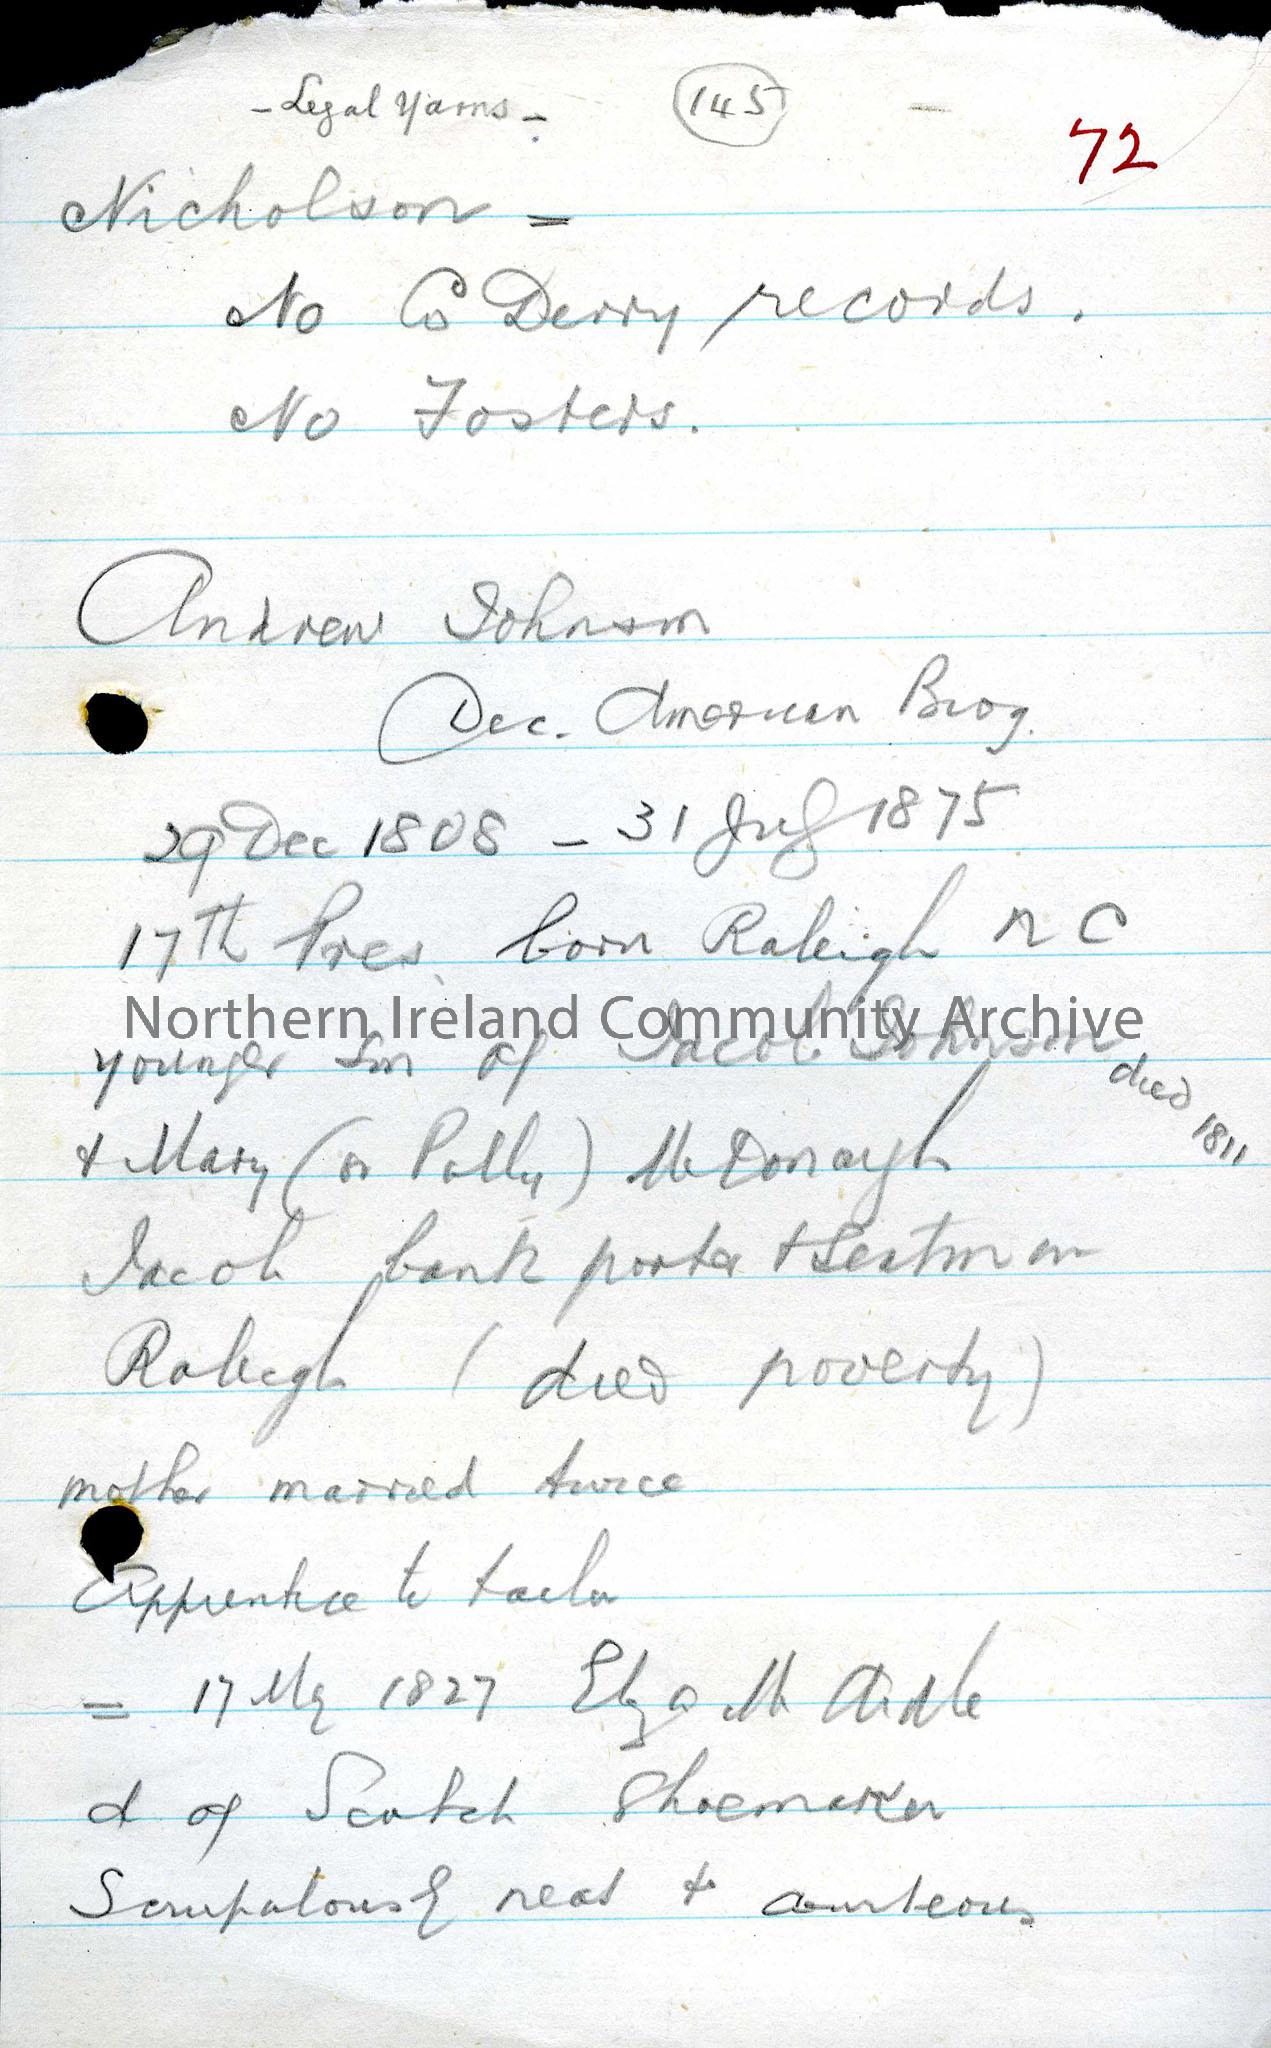 - Legal Yarns -
145
72
Nicholson =
No Co Derry records.
No Fosters.
Andrew Johnson
Dic. American Biog.
29 Dec 1808 - 31 July 1875
17th Pres. born Raleigh N C
Northern Ireland Community Archive
younger son of Jacob Johnson
died 1811
& Mary (or Polly) McDonagh
Jacob bank porter & sexton in
Raleigh ( died poverty)
mother married twice
Apprentice to tailor
= 17 May 1827 Eliza Mc Ardle
d of Scotch Shoemaker
Scrupulously neat & courteous